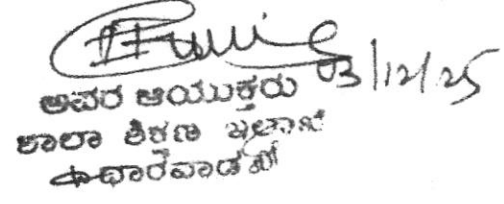 03/12/25
ಅಪರ ಆಯುಕ್ತರು
ಶಾಲಾ ಶಿಕ್ಷಣ ಇಲಾಖೆ
ಧಾರವಾಡ